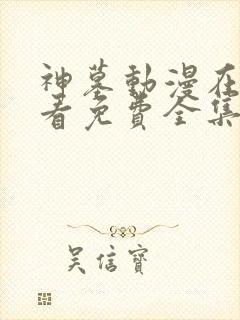 神墓動漫在
看免費全集
吴信寶